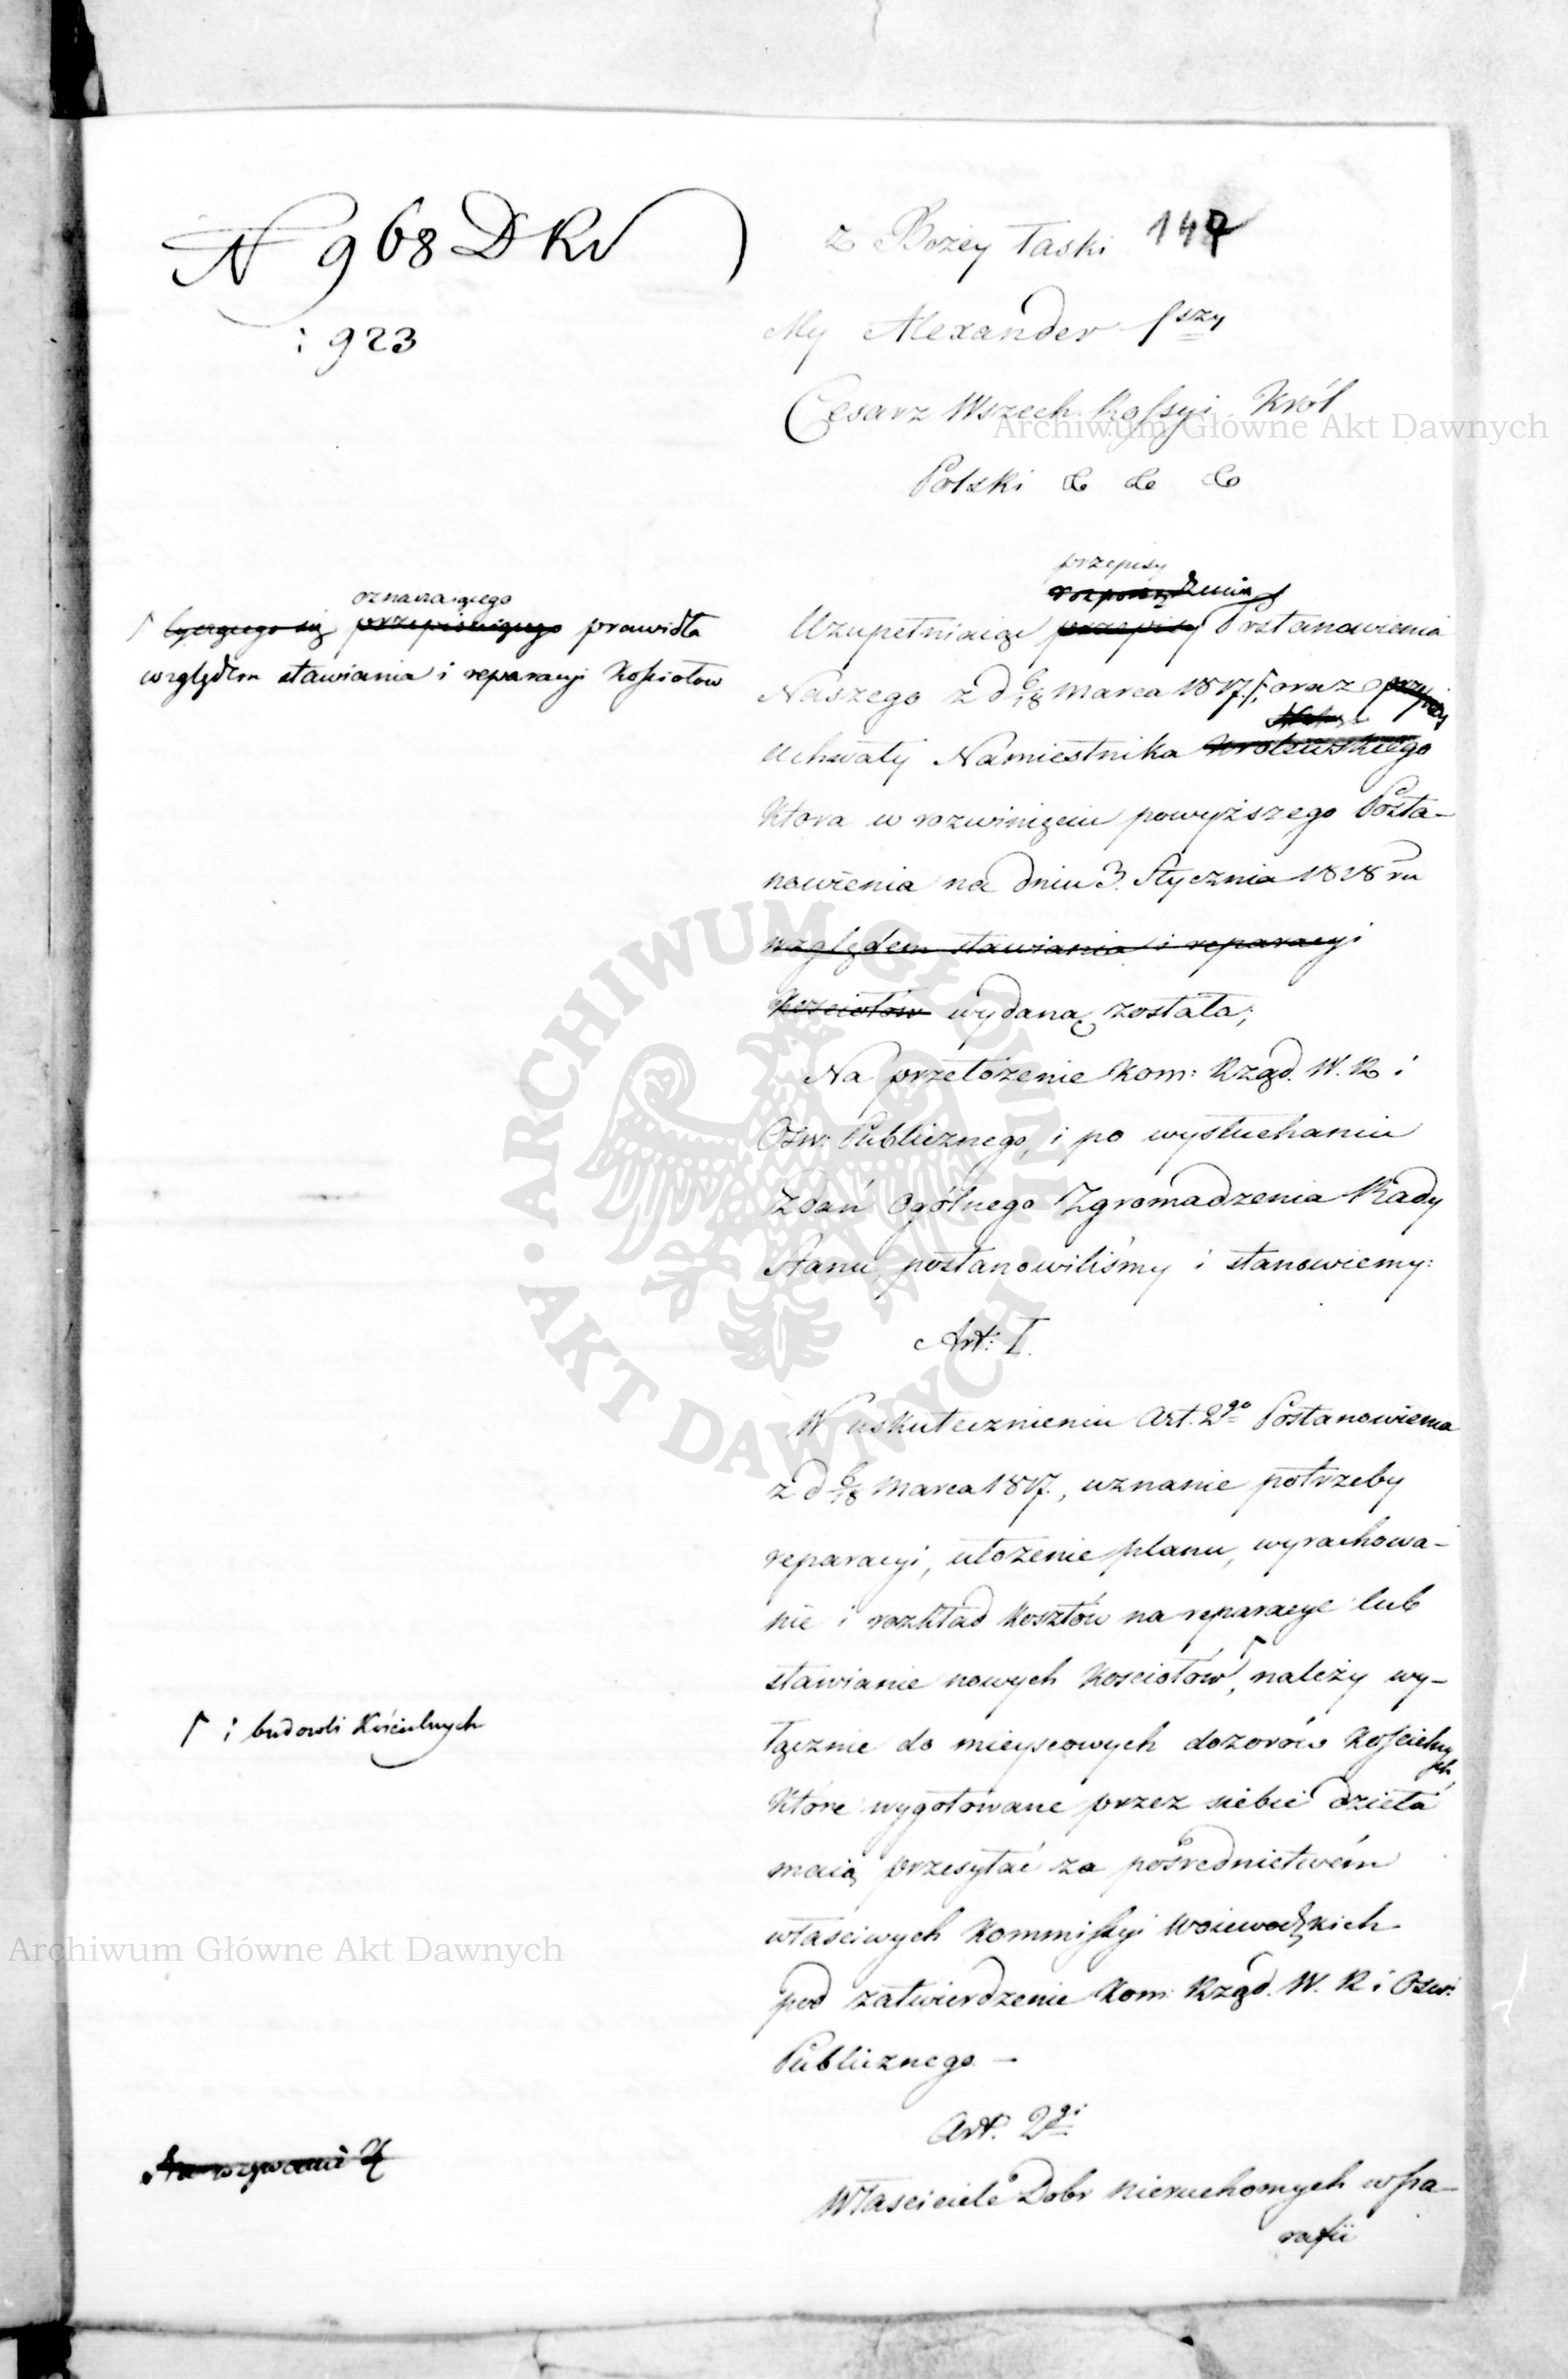 N 968 DKW
: 923
147
z Bożey Łaski
My Alexander Iszy
Cesarz Wszech Rossyi, Król
Polski &c &c &c
przepisy
rozporządzenia
Uzupełniaiąc przepisy Postanowienia
Naszego z d 6/18 Marca 1817 r, oraz przepisy
Uchwały Namiestnika Królewskiego
Która w rozwinięciu powyższego Posta-
nowienia na dniu 3. Stycznia 1818 ru
względem stawiania i reparacyi
Kościołów wydaną została;
Na przełożenie Kom: Rząd. W. R. i
Ośw: Publicznego, i po wysłuchaniu
Zdań Ogólnego Zgromadzenia Rady
Stanu, postanowiliśmy i stanowiemy:
Art: I.
W uskutecznieniu Art. 2go Postanowienia
z d 6/18 Marca 1817., uznanie potrzeby
reparacyi, ułożenie planu, wyrachowa-
nie i rozkład Kosztów na reparacye lub
stawianie nowych Kosciołów, należy wy-
łącznie do mieyscowych dozorów Kościelnych,
Które wygotowane przez siebie dzieła
maią przesyłać za pośrednictwem
właściwych Kommissyi Woiewodzkich
pod zatwierdzenie Kom: Rząd. W. R i Ośw:
Publicznego –
Art. 2gi
Własciciele Dobr Nieruchomych w Pa-
rafii
oznaczaiącego
tyczącego się przepisuiącego prawidła
względem stawiania i reparacyi Kościołow
i budowli Kościelnych
Archiwum Główne Akt Dawnych
Archiwum Główne Akt Dawnych
ARCHIWUM GŁÓWNE
AKT DAWNYCH